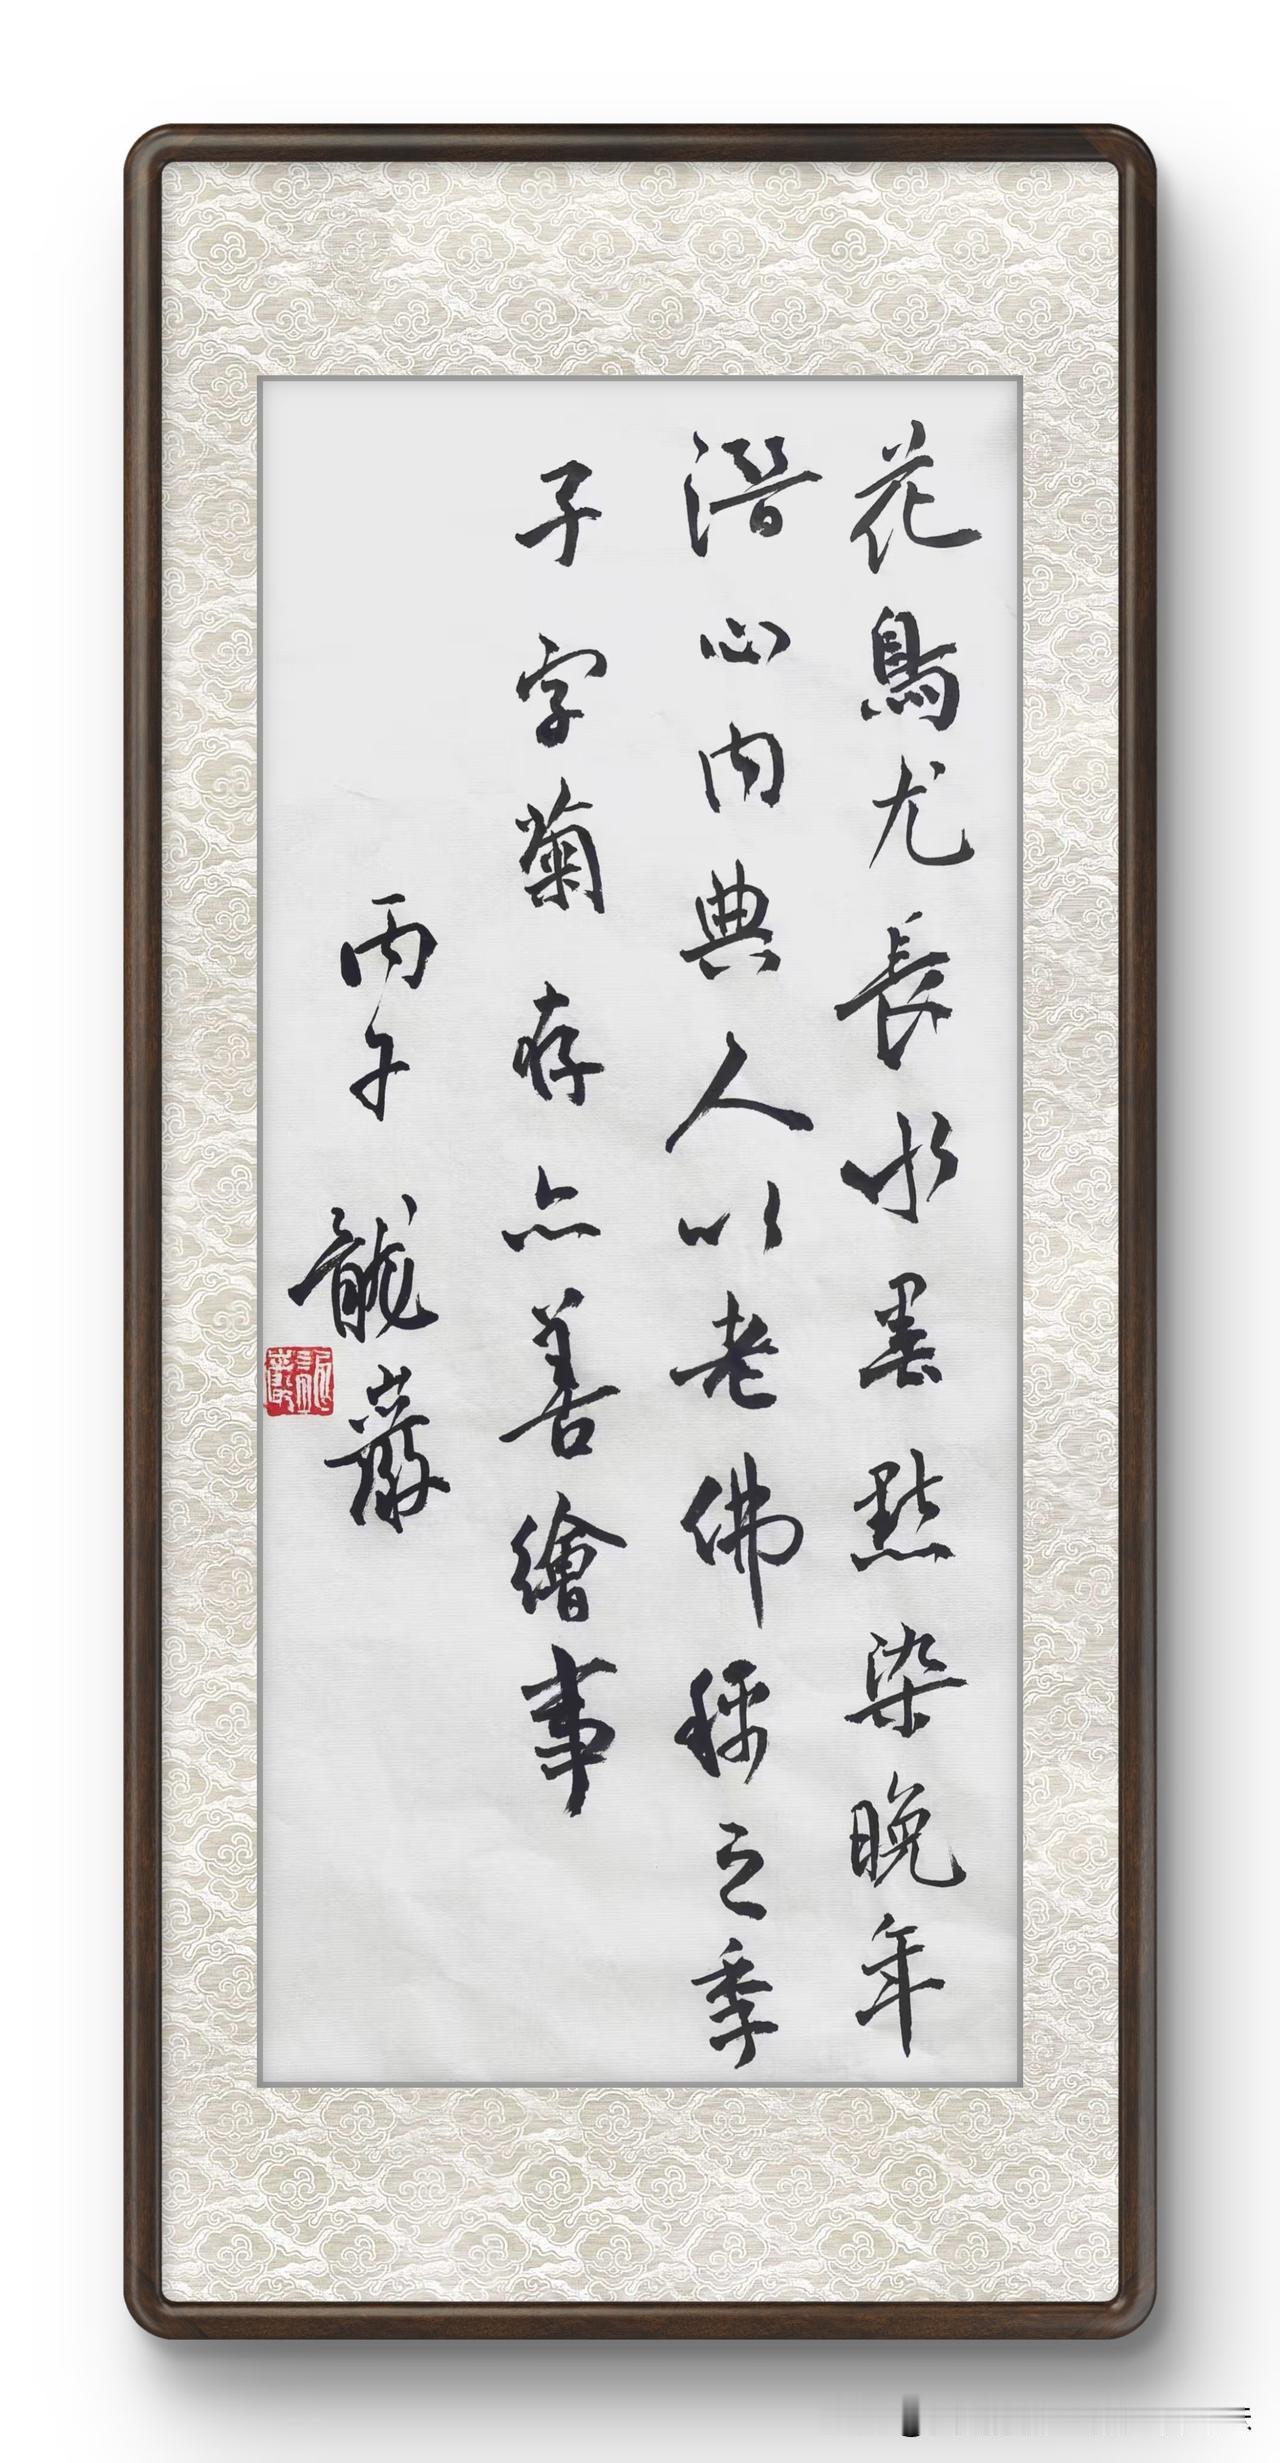 花鳥尤長水墨點染晚年
潛心内典人以老佛稱之季
子字菊存亦善繪事
丙午 龍巖